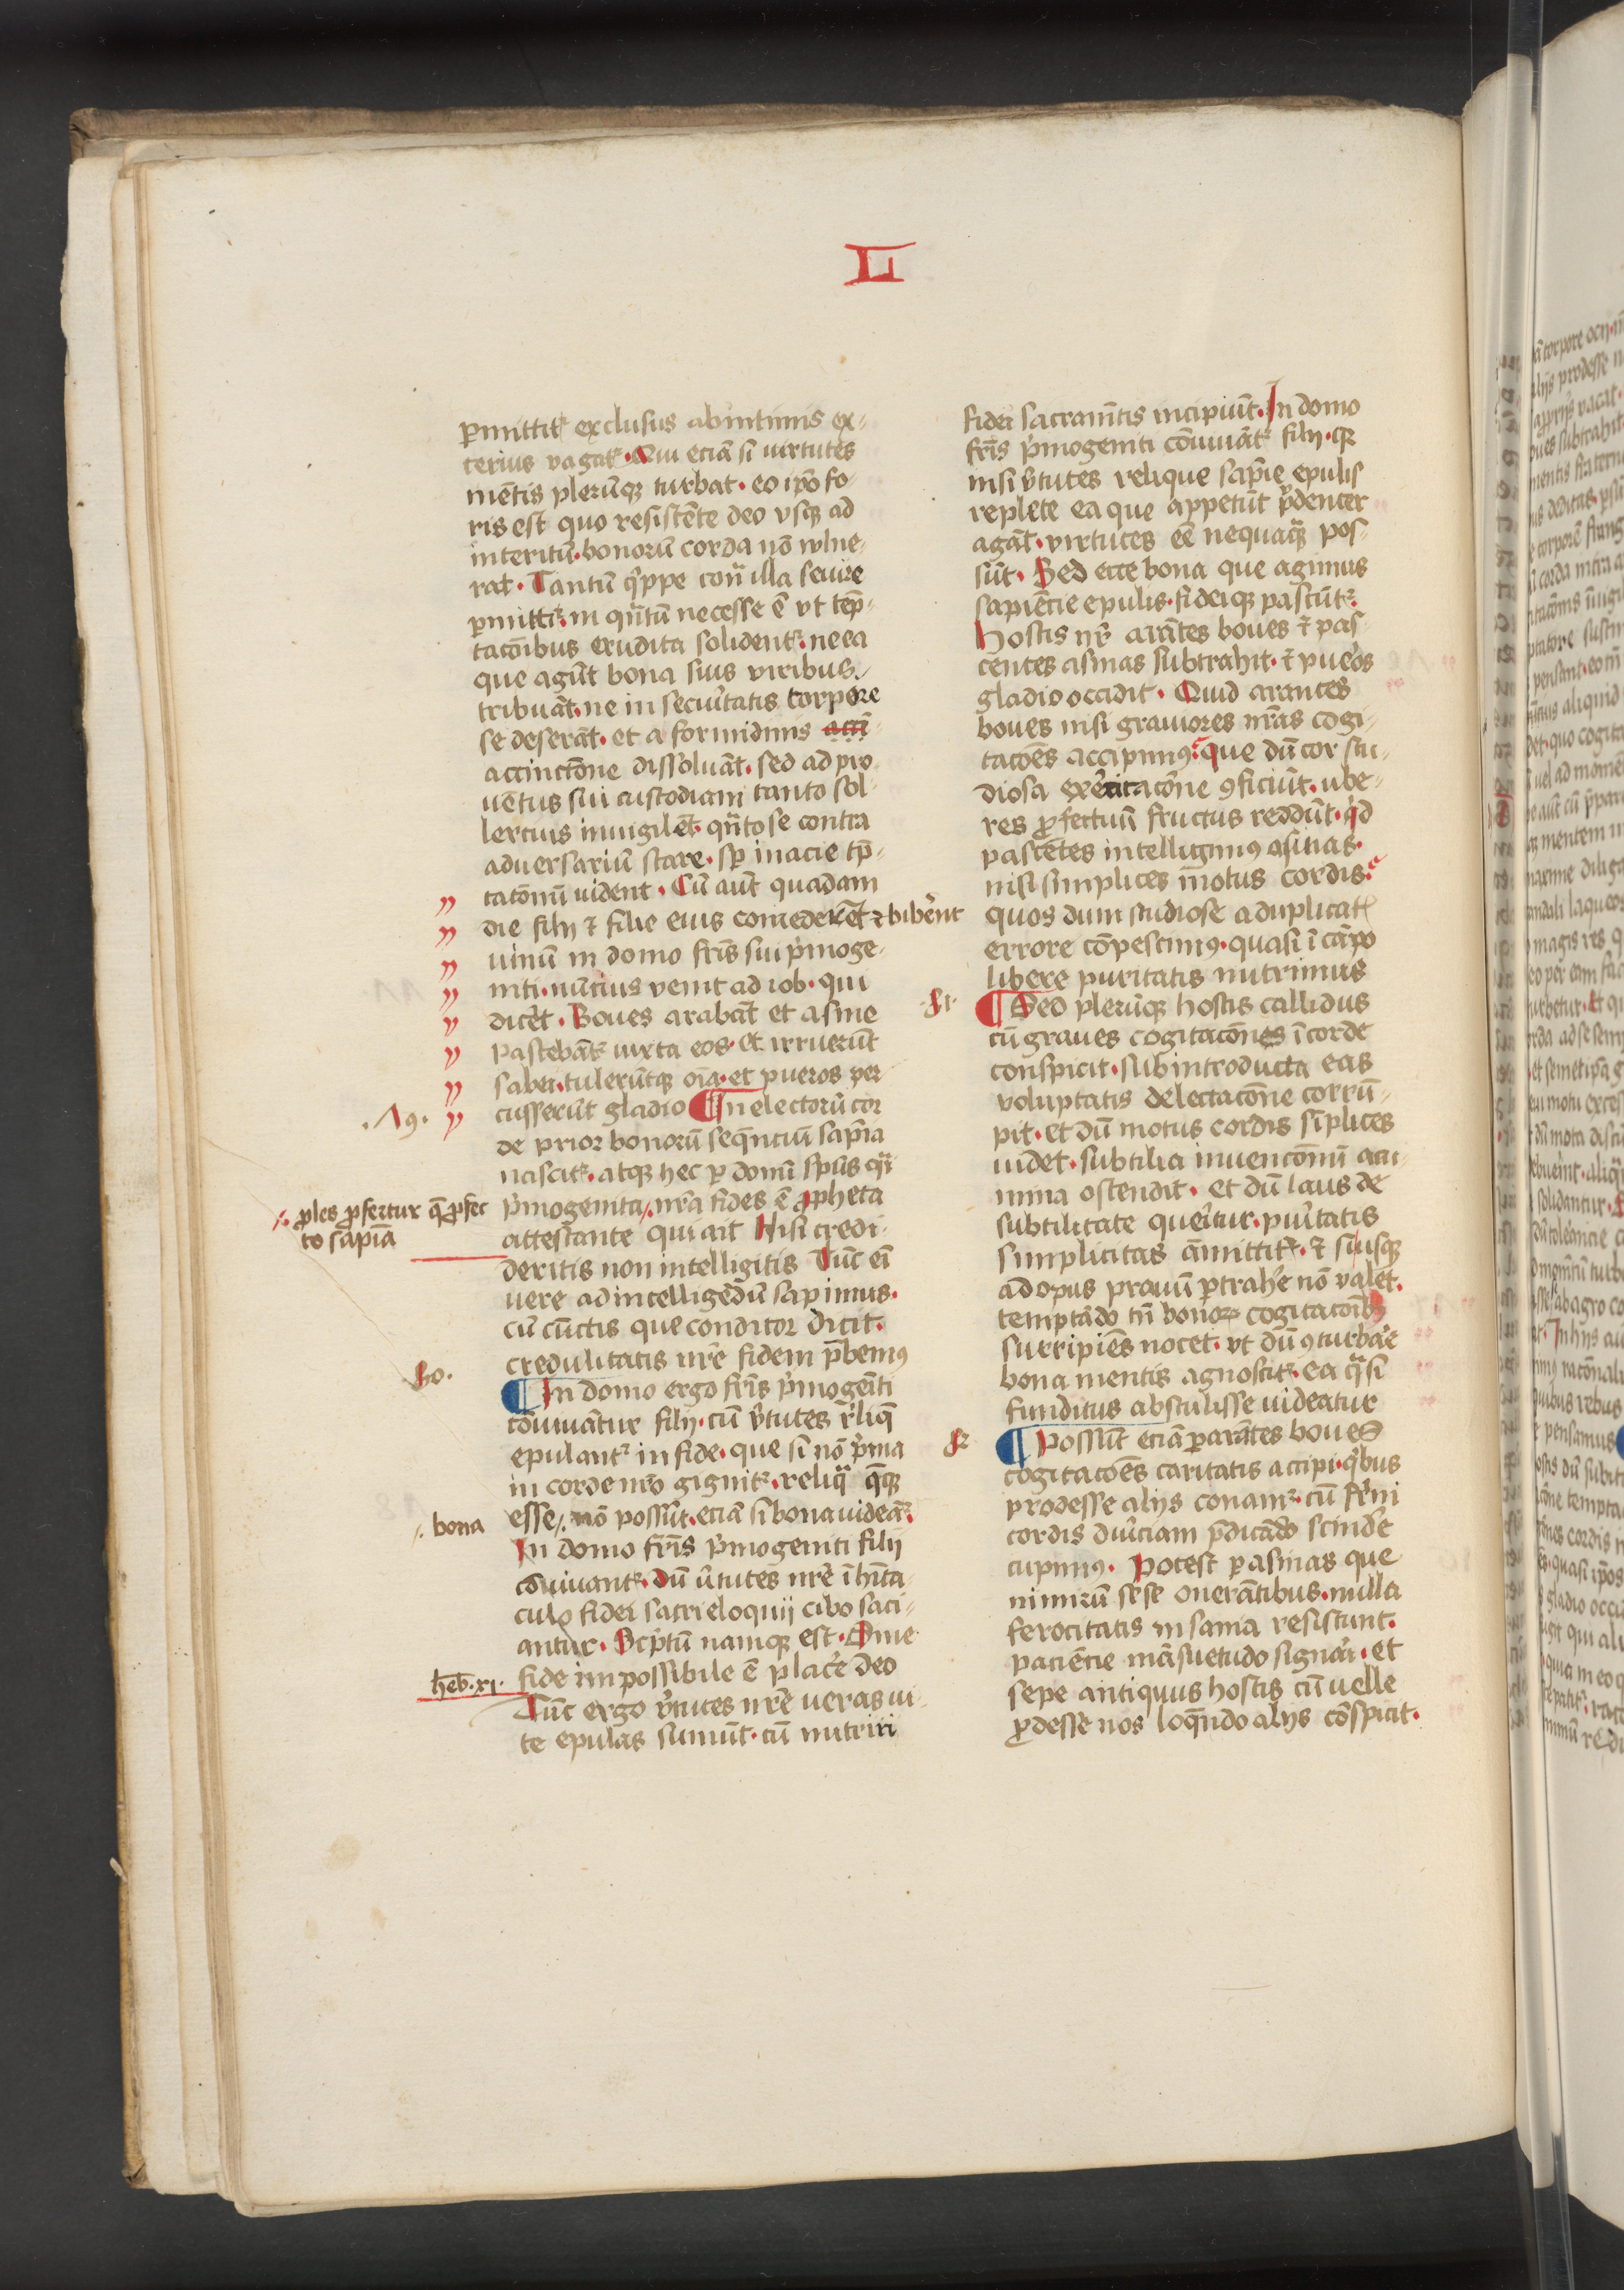 L
ꝑmittit᷑ exclusus ab intimis ex-
terius vagat᷑. Qui eciā si virtutes
mētis plerūqꝫ turbat. eo ip̄o fo-
ris est quo resistēte deo vsqꝫ ad
interitū. bonorū corda nō wlne-
rat. Tantū q̄ppe cont͛ illa seuire
ꝑmittit᷑. in q̄ntū necesse ē vt tēp-
tacōibus erudita solident᷑. ne ea
que agūt bona suis viribus
tribuāt. ne in secur͛tatis torpore
se deserāt. et a formidinis acci-
accinctōne dissoluāt. sed ad pro-
uētus sui custodiam tanto sol-
lercius inuigilēt. q̄nto se contra
aduersariū stare. sꝑ in acie tp̄-
tatōnū vident. Cū aūt quadam
die filij ⁊ filie eius comederēt ⁊ biber͛ent
uinū in domo fr̄is sui p͛moge-
niti. nūcius venit ad iob. qui
dicēt. Boues arabāt et asine
pascebāt᷑ iuxta eos. et irruerūt
sabei. tulerūtqꝫ oīa. et pueros per
cusserūt gladio ¶ In electorū cor
.19.
de prior bonorū seq̄ntiū sap̄ia
nascit᷑. atqꝫ hec ꝑ donū sp̄us q͛si
p͛mogenita /. nr̄a fides ē ꝓpheta
/. ꝓles ꝓfertur q̄ ꝓfec
to sapiā
attestante qui ait Nisi credi-
deritis non intelligitis Tūc ei͂
uere ad intelligēdū sapimus.
cū cūctis que conditor dicit.
credulitatis nr̄e fidem p̄bemꝰ
20.
¶ In domo ergo fr̄is p͛mogēiti
cōuiuātur filij. cū v͛tutes r͛liq̄
epulant᷑ in fide. que si nō p͛ma
in corde nr̄o gignit᷑. reliq͛ q̄qꝫ
esse /. nō possūt. eciā si bona uideāt᷑.
/. bona
In domo fr̄is p͛mogeniti filij
cōuiuant᷑. dū v͛tutes nr̄e ī hīta-
culo fidei sacri eloquij cibo saci-
antur. Scͥptū namqꝫ est. Sine
fide impossibile ē plac͛e deo
heb̄. xi.
Tūc ergo v͛tutes nr̄e ueras vi-
te epulas sumūt. cū nutriri
fidei sacramētis incipiūt. In domo
fr̄is p͛mogeniti cōuiuāt᷑ filij. qꝛ
nisi v͛tutes relique sap̄ie epulis
replete ea que appetūt p͛denter
agāt. virtutes eē nequaq͛ pos-
sūt. Sed ecce bona que agimus
sapiēcie epulis. fideiqꝫ pascūt᷑.
Hostis nr̄ arātes boues ⁊ pas-
centes asinas subtrahit. ⁊ puer͛os
gladio occidit. Quid arantes
boues nisi grauiores nr̄as cogi-
tacōes accipimꝰ. que dū cor stu-
diosa exercitacōne ꝯficiūt. ube-
res ꝓfectuū fructus reddūt. q͛d
pascētes intelligimꝰ asinas.
nisi simplices motus cordis.
quos dum studiose a duplicat͛
errore cōpescimꝰ. quasi ī cāpo
libere puritatis nutrimus
.21.
¶ Sed plerūqꝫ hostis callidus
cū graues cogitacōnes ī corde
conspicit. sub introducta eas
voluptatis delectacōne corrū-
pit. et dū motus cordis sīplices
uidet. subtilia inuencōnū acu-
mina ostendit. et dū laus de
subtilitate quer͛itur. pur͛tatis
simplicitas āmittit᷑. ⁊ si vsqꝫ
ad opus prauū ꝑtrah͛e nō valet.
temptādo tn̄ bonoꝝ cogitacōibꝫ
surripiēs nocet. vt dū ꝯturbar͛e
bona mentis agnoscit᷑. ea q͛si
funditus abstulisse uideatur
22
¶ Possūt eciā ꝑ arātes boues
cogitacōes caritatis accipi. q͛bus
prodesse alijs conam᷑. cū fr̄ni
cordis dur͛iciam p̄dicādo scind͛e
cupimꝰ. Potest ꝑ asinas que
nimirū sese onerātibus. nulla
ferocitatis insania resistunt.
paciēcie māsuetudo signari. et
sepe antiquus hostis cū uelle
ꝓdesse nos loq̄ndo alijs cōspicit.